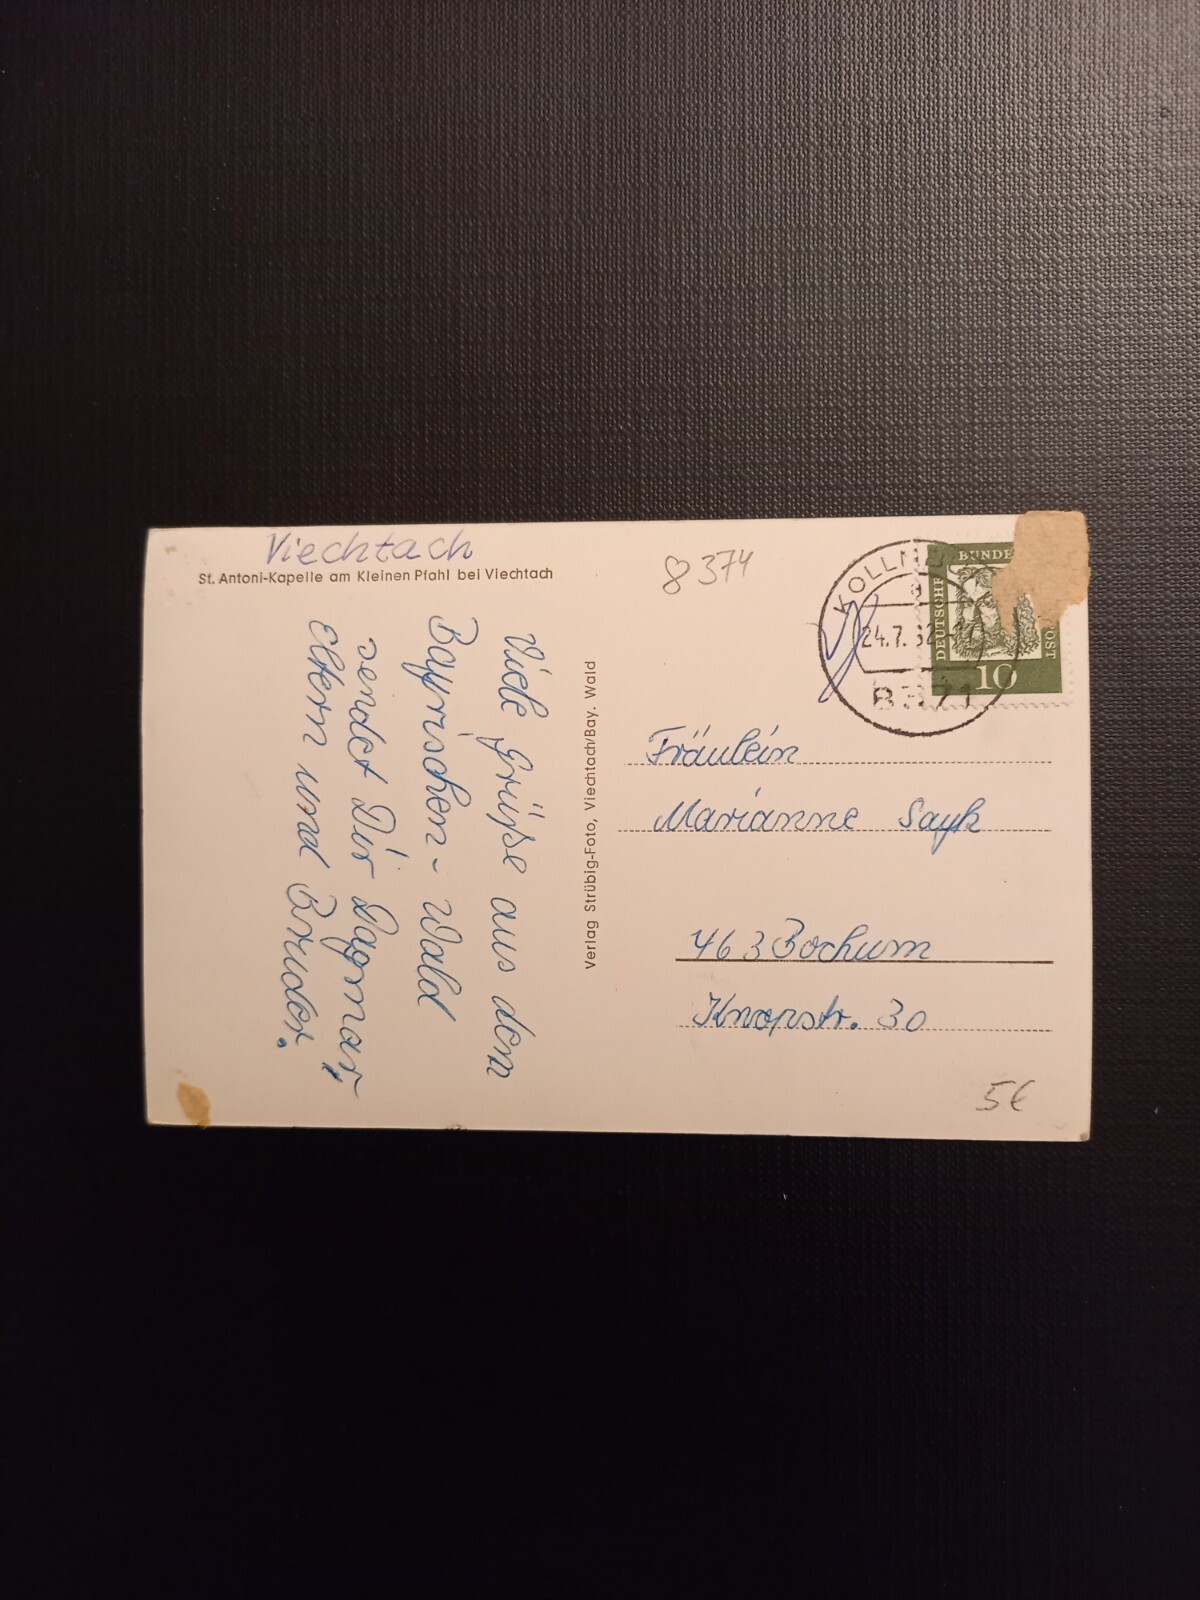 Viechtach
St. Antoni-Kapelle am Kleinen Pfahl bei Viechtach
8374
Viele Grüße aus dem
Bayrischen-Wald
sendet Dir Dagmar,
Eltern und Bruder.
Verlag Strübig-Foto, Viechtach/Bay. Wald
KOLLN
24.7.62-10
8371
DEUTSCHE BUNDE OST
10
Fräulein
Marianne Sayk
463 Bochum
Knopstr. 30
5€